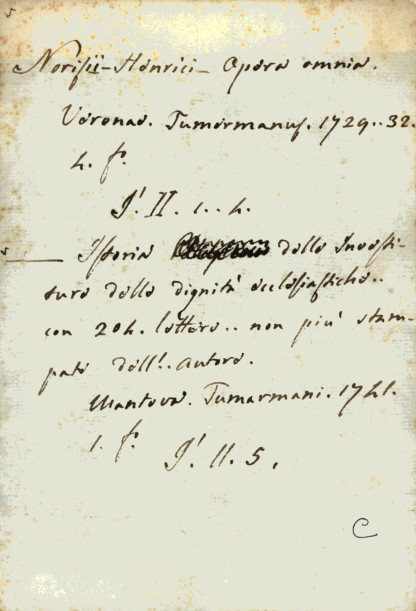 Norisii-Henrici- Opera omnia.
Veronae. Tumermanus. 1729..32.
4. f.o
J! II. 1..4.
Istoria delle Investi-
ture delle dignità ecclesiastiche..
con 204. lettere.. non più stam-
pate dell'. autore.
Mantova. Tumarmani. 1741.
1. f.o
J! II. 5.
C